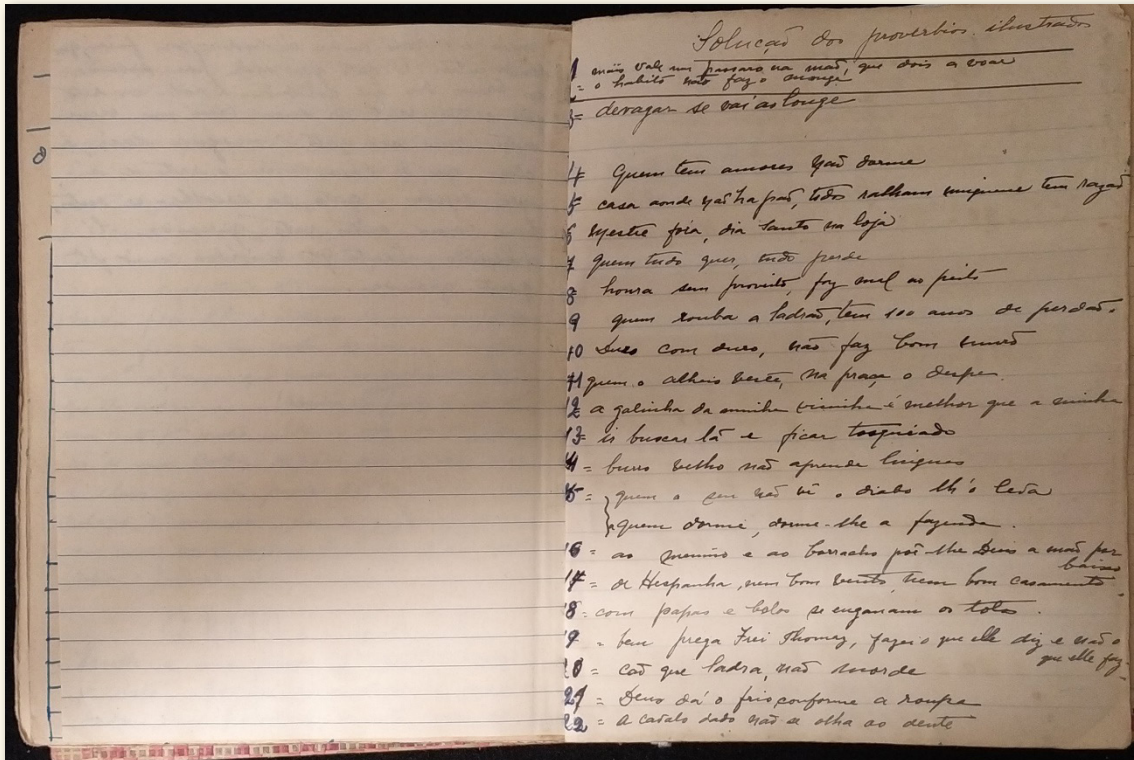 Solução dos proverbios illustrados
1 mais vale um passaro na mão, que dois a voar
2 = o habito não faz o monge
3 = devagar se vai ao longe
4 Quem tem amores não dorme
5 casa aonde não ha pão, todos ralham ninguem tem razão
6 Mestre fóra, dia santo na loja
7 quem tudo quer, tudo perde
8 honra sem proveito, faz mal ao peito
9 quem rouba a ladrão, tem 100 anos de perdão.
10 Duro com duro, não faz bom muro
11 quem o alheio veste, na praça o despe.
12 a galinha da minha visinha é melhor que a minha
13 = is buscar lã e ficar tosqueado
14 = burro velho não aprende linguas
15 = quem o seu não vê o diabo lh'o leva
quem dorme, dorme-lhe a fazenda.
16 = ao menino e ao borracho põe-lhe Deus a mão por
baixo
17 = de Hespanha, nem bom vento, nem bom casamento.
18 = com papas e bolos se enganam os tolos.
19 = bem prega Frei Thomaz, fazer o que elle diz e não o
que elle faz.
20 = cão que ladra, não morde
21 = Deus dá o frio conforme a roupa
22 = A cavalo dado não se olha ao dente